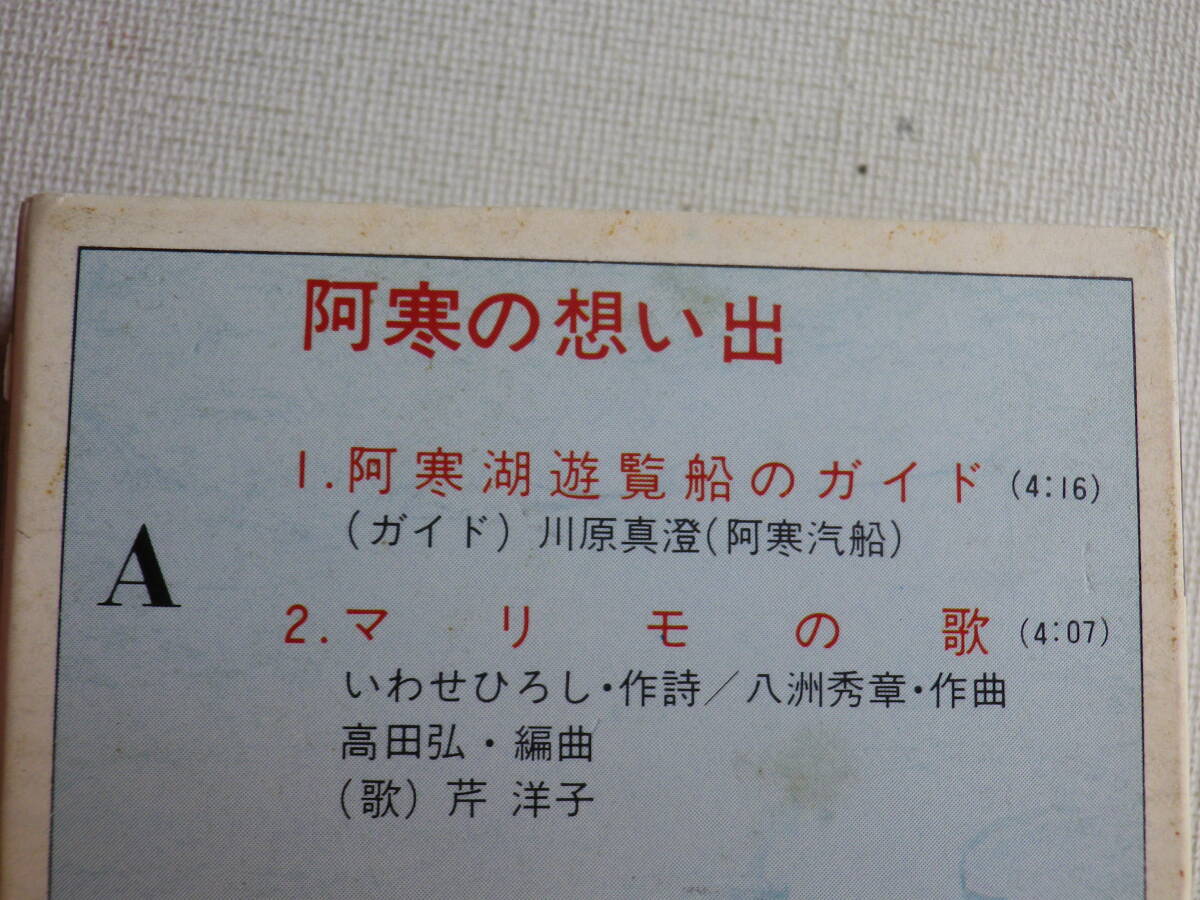 阿寒の想い出
A
1.阿寒湖遊覧船のガイド(4:16)
(ガイド)川原真澄(阿寒汽船)
2.マリモの歌(4:07)
いわせひろし・作詩/八洲秀章・作曲
高田弘・編曲
(歌)芹 洋子